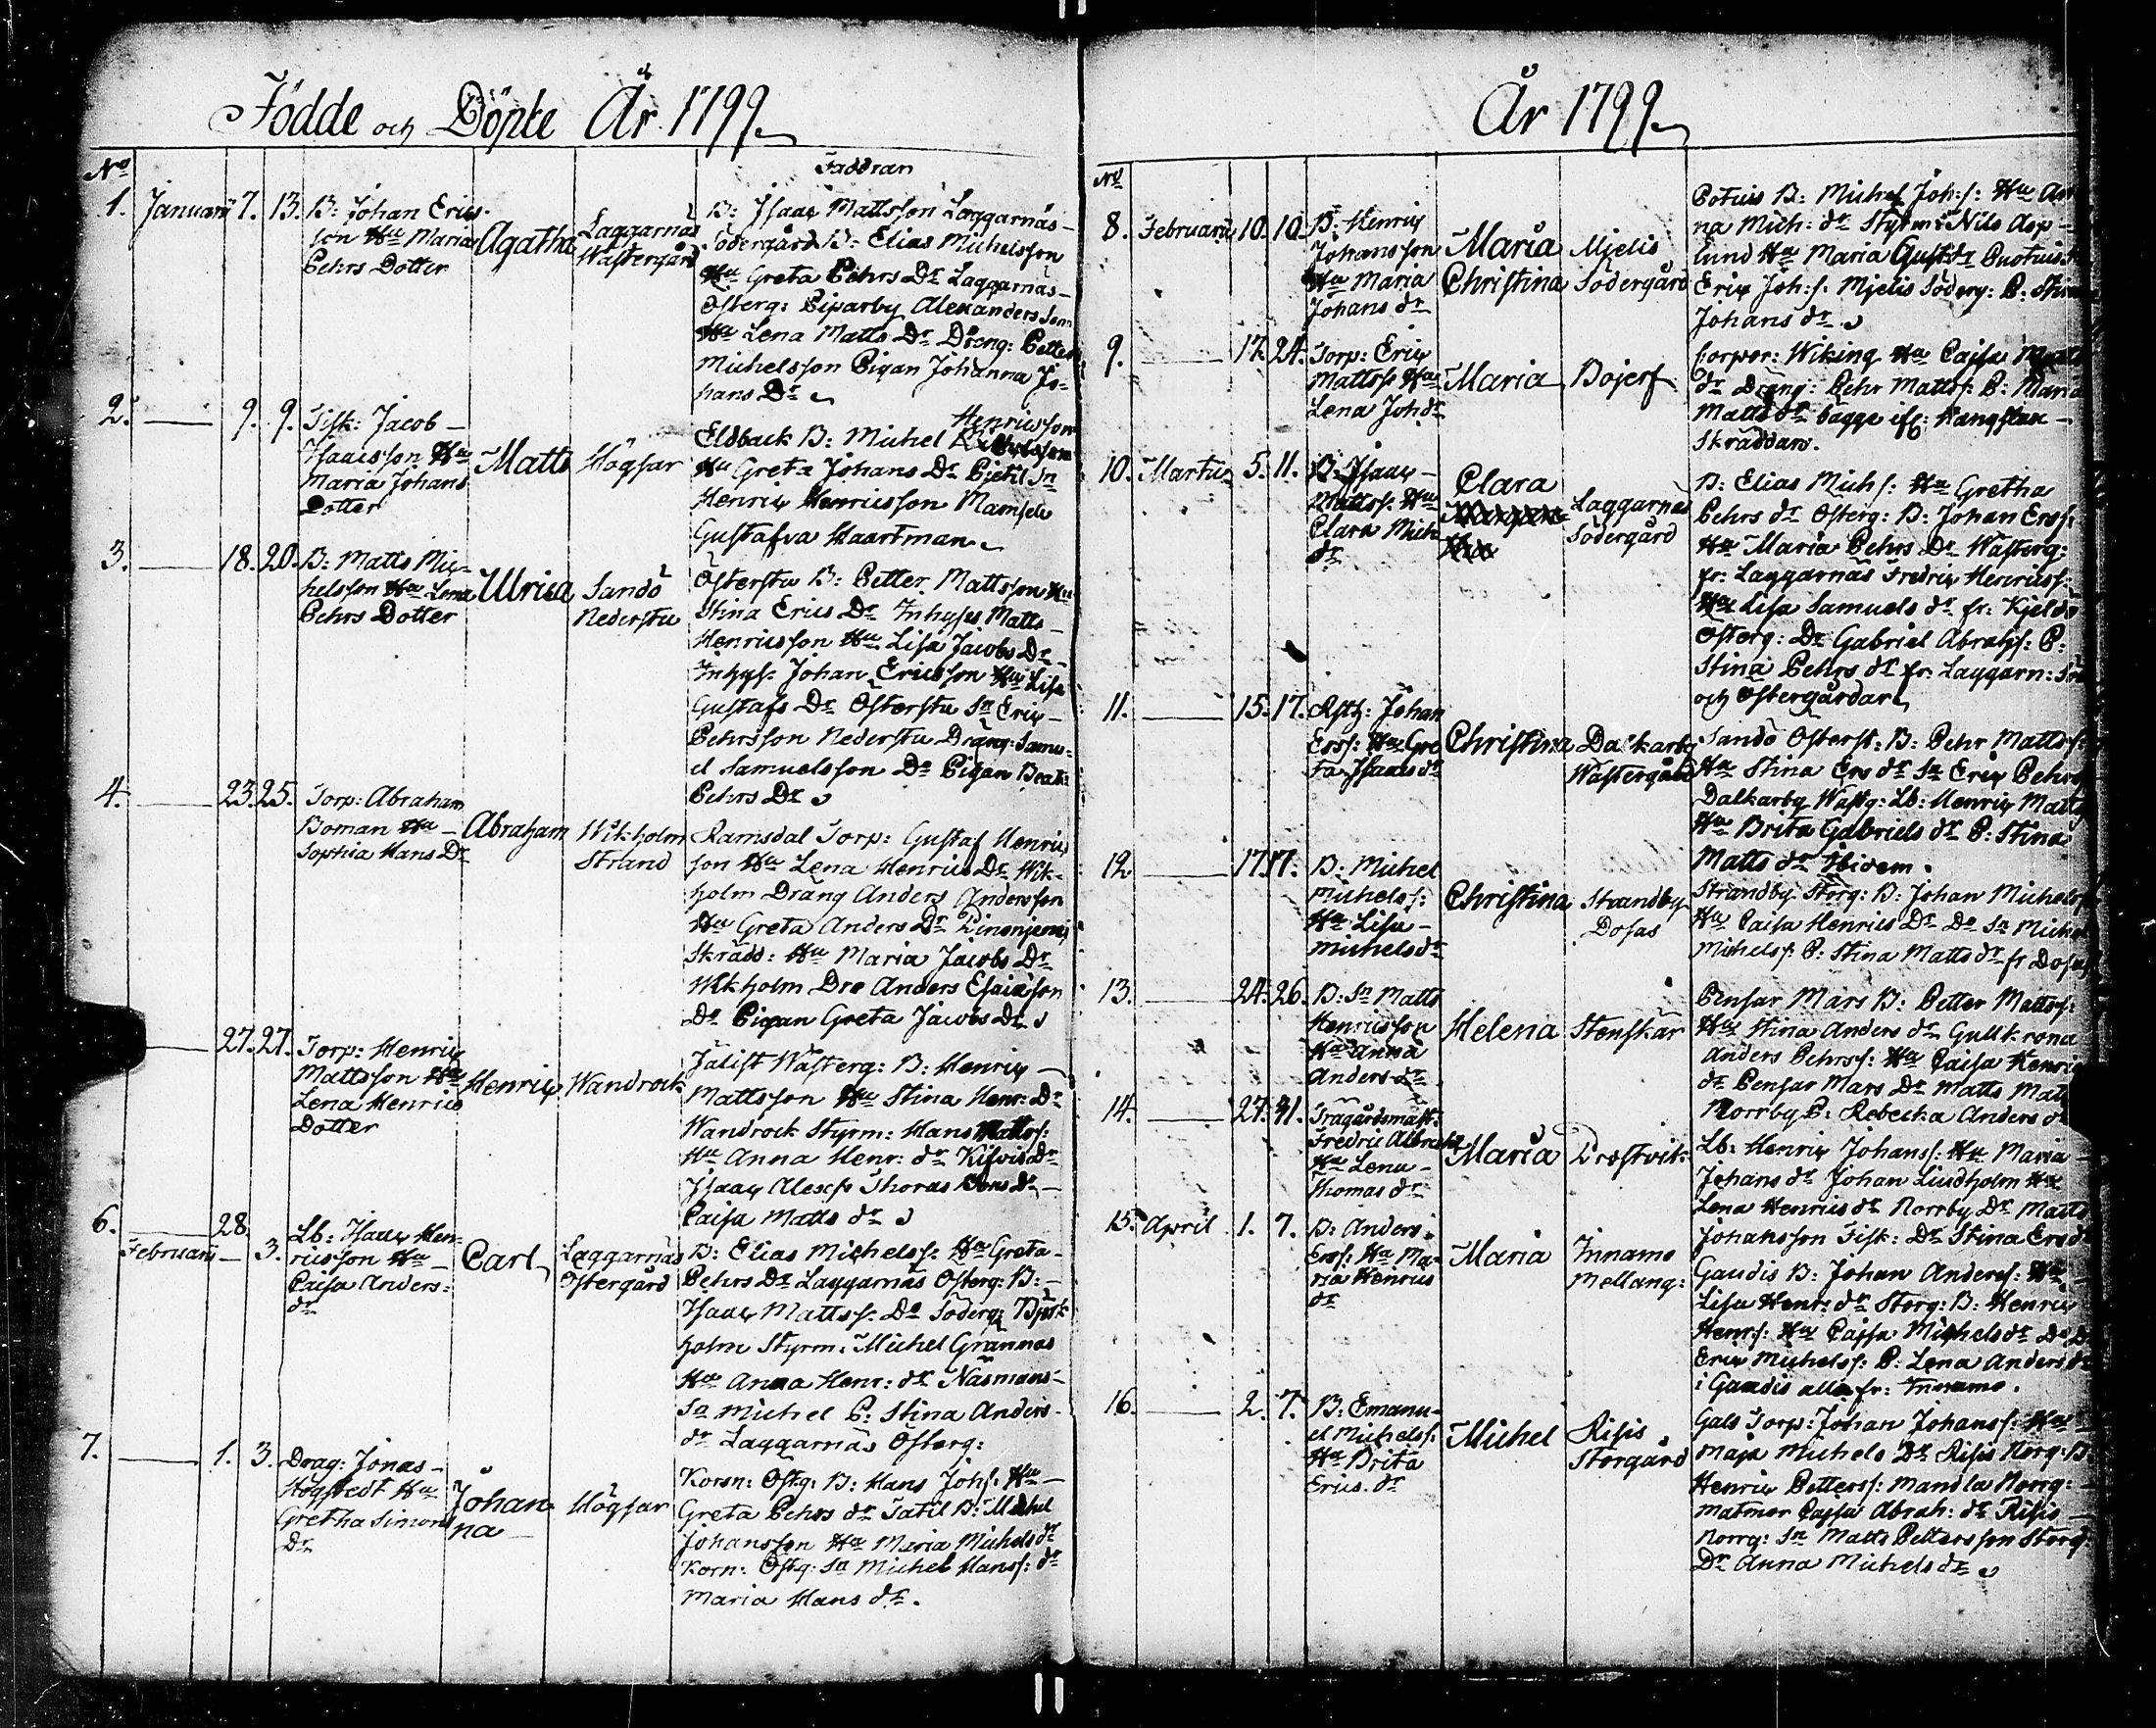 Födde och Döpte År 1799
Faddran
No
1. Januarii 7. 13. B: Johan Erics-
son Hu Maria
Pehrs Dotter
Agatha
Laggarnäs
Wästergård
B: Isaac Mattsson Laggarnäs-
Södergård B: Elias Michelsson
Hu Greta Pehrs Dr Laggarnäs-
Österg: Piparby Alexandersson
Hu Lena Matts Dr Dräng: Petter
Michelsson Pigan Johanna Jo-
hans Dr
2. 9. 9. Fisk: Jacob
Isaacsson Hu
Maria Johans
Dotter
Matts
Högsar
Henricsson
Eldback B: Michel
Hu Greta Johans Dr Pietil Sn
Henric Henricsson Mamsele
Gustafva Haartman
3. 18. 20. B: Matts Mic-
helsson Hu Lena
Pehrs Dotter
Ulrica
Sandö
Nederstu
Österstu B: Petter Mattsson Hu
Stina Erics Dr Inhyses Matts
Henricsson Hu Lisa Jacobs Dr
Inhys: Johan Ericsson Hu Lisa
Gustafs Dr Österstu Sn Eric
Pehrsson Nederstu Dräng: Samu-
el Samuelsson Do Pigan Beat:
Pehrs Dr
4. 23. 25. Torp: Abraham
Boman Hu
Sophia Hans Dr
Abraham
Wikholm
Strand
Ramsdal Torp: Gustaf Henrics
son Hu Lena Henrics Dr Wik-
holm Dräng Anders Andersson
Hu Greta Anders Dr
Skrädd: Hu Maria Jacobs Dr
Wikholm Dre Anders Esaiasson
Do Pigan Greta Jacobs Dr
27. 27. Torp: Henric
Mattsson Hu
Lena Henrics
Dotter
Henric
Wandrock
Jälist Wästerg: B: Henric
Mattsson Hu Stina Henr: Dr
Wandrock Styrm: Hans Mattss:
Hu Anna Henr: dr Kifvis Dr
Isaac Alexs: Thoras Sons Dr
Caisa Matts dr
6. 28.
Februarii 3. Lb: Isaac Hen-
ricsson Hu
Caisa Anders:
dr
Carl
Laggarnäs
Östergård
B: Elias Michelss: Hu Greta
Pehrs Dr Laggarnäs Österg: B:
Isaac Mattss: Do Söderg: Björk
holm Styrm: Michel Grannas
Hu Anna Henr: dr Näsmans
Sn Michel P: Stina Anders
dr Laggarnäs Österg:
7. 1. 3. Drag: Jonas
Högstedt Hu
Gretha Simons
Dr
Johan-
na
Högsar
Korsn: Östg: B: Hans Johs: Hu
Greta Pehrs dr Tatil B: Michel
Johansson Hu Maria Michels dr
Korn: Östg: Sn Michel Hanss: dr
Maria Hans dr.
År 1799
No
8. Februarii 10. 10. B: Henric
Johansson
Hu Maria
Johans dr
Maria
Christina
Mjelis
Södergård
Potuis B: Michel Joh:s: Hu An
na Mich: dr Styrm: Nils Asp-
lund Hu Maria Gust: dr
Eric Joh:s: Mjelis Söderg: P: Stina
Johans dr
9. 17. 24. Torp: Eric
Mattss: Hu
Lena Joh dr
Maria
Bojers
Corpor: Wiking Hu Cajsa Matts
dr Dräng: Pehr Mattss: P: Maria
Matts dr bägge
Skräddars.
10. Martii 5. 11. B: Isaac
Mattss: Hu
Clara Mich
dr
Clara
Laggarnäs
Södergård
B: Elias Mich s: Hu Gretha
Pehrs dr Österg: B: Johan Erss:
Hu Maria Pehrs Dr Wästerg:
fr: Laggarnäs Fredric Henricss:
Hu Lisa Samuels dr fr: Kjeldö
Österg: Dr Gabriel Abrahs: P:
Stina Pehrs dr fr: Laggarn: Sö
och Östergårdar
11. 15. 17. Johan
Erss: Hu Gre
ta Isaacs dr
Christina
Dalkarby
Wästergård
Sandö Österst: B: Pehr Mattss:
Hu Stina Ers dr Sn Eric Pehrs
Dalkarby Wästg: Lb: Henric Matts
Hu Brita Gabriels dr P: Stina
Matts dr Ibidem.
12 17. 17. B: Michel
Michelss:
Hu Lisa
Michels dr
Christina
Strandby
Dosas
Strandby Storg: B: Johan Michelss
Hu Caisa Henrics Dr Do Sn Michel
Michelss: P: Stina Matts dr fr Dosas
13. 24. 26. B: Sn Matts
Henricsson
Hu Anna
Anders dr
Helena
Stenskär
Pensar Mars B: Petter Mattss:
Hu Stina Anders dr Gullkrona
Anders Pehrss: Hu Caisa Henric
dr Pensar Mars Dr Matts Mat
Norrby P: Rebecka Anders dr
14. 27. 31. Trägårdsmäst:
Fredric Albrecht
Hu Lena
Thomas dr
Maria
Prostvik
Lb: Henric Johanss: Hu Maria
Johans dr Johan Lindholm Hu
Lena Henrics dr Norrby Dr Matts
Johansson Fisk: Dr Stina Ers dr
15. April 1. 7. B: Anders
Erss: Hu Ma-
ria Henrics
dr
Maria
Innamo
Mellang:
Gaudis B: Johan Anderss: Hu
Lisa Henr: dr Storg: B: Henric
Henrs: Hu Cajsa Michels dr Do D
Eric Michelss: P: Lena Anders dr
i Gaudis alla fr: Innamo.
16. 2. 7. B: Emanu-
el Michelss:
Hu Brita
Erics dr
Michel
Risis
Storgård
Gals Torp: Johan Johanss: Hu
Maja Michels Dr Risis Norg: B:
Henric Petterss: Mandla Norrg:
Matmor Cajsa Abrah: dr Risis
Norrg: Sn Matts Pettersson Storg:
Dr Anna Michels dr